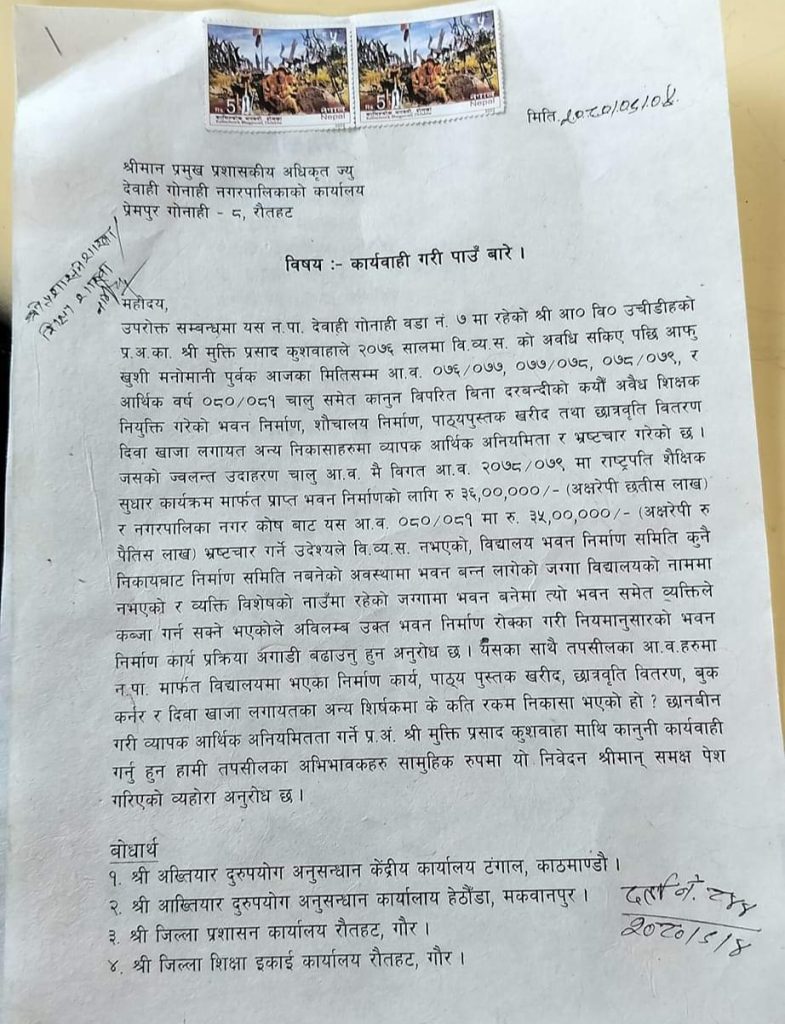 Rs 5
नेपाल
Nepal
Rs 5
नेपाल
Nepal
मिति २०८०/०६/०४
श्रीमान प्रमुख प्रशासकीय अधिकृत ज्यु
देवाही गोनाही नगरपालिकाको कार्यालय
प्रेमपुर गोनाही - ८, रौतहट
विषय :- कार्यवाही गरी पाउँ बारे ।
शिक्षा शाखा
महोदय,
उपरोक्त सम्बन्धमा यस न.पा. देवाही गोनाही वडा नं. ७ मा रहेको श्री आ० वि० उचीडीहको
प्र.अ.का. श्री मुक्ति प्रसाद कुशवाहाले २०७६ सालमा वि.व्य.स. को अवधि सकिए पछि आफु
खुशी मनोमानी पुर्वक आजका मितिसम्म आ.व. ०७६/०७७, ०७७/०७८, ०७८/०७९, र
आर्थिक वर्ष ०८०/०८१ चालु समेत कानुन विपरित बिना दरबन्दीको कयौं अवैध शिक्षक
नियुक्ति गरेको भवन निर्माण, शौचालय निर्माण, पाठ्यपुस्तक खरीद तथा छात्रवृति वितरण
दिवा खाजा लगायत अन्य निकासाहरुमा व्यापक आर्थिक अनियमिता र भ्रष्टचार गरेको छ ।
जसको ज्वलन्त उदाहरण चालु आ.व. मै विगत आ.व. २०७८/०७९ मा राष्ट्रपति शैक्षिक
सुधार कार्यक्रम मार्फत प्राप्त भवन निर्माणको लागि रु ३६,००,०००/- (अक्षरेपी छतीस लाख)
र नगरपालिका नगर कोष बाट यस आ.व. ०८०/०८१ मा रु. ३५,००,०००/- (अक्षरेपी रु
पैतिस लाख) भ्रष्टचार गर्ने उदेश्यले वि.व्य.स. नभएको, विद्यालय भवन निर्माण समिति कुनै
निकायबाट निर्माण समिति नबनेको अवस्थामा भवन बन्न लागेको जग्गा विद्यालयको नाममा
नभएको र व्यक्ति विशेषको नाउँमा रहेको जग्गामा भवन बनेमा त्यो भवन समेत व्यक्तिले
कब्जा गर्न सक्ने भएकोले अविलम्ब उक्त भवन निर्माण रोक्का गरी नियमानुसारको भवन
निर्माण कार्य प्रक्रिया अगाडी बढाउनु हुन अनुरोध छ । यसका साथै तपसीलका आ.व.हरुमा
न.पा. मार्फत विद्यालयमा भएका निर्माण कार्य, पाठ्य पुस्तक खरीद, छात्रवृति वितरण, बुक
कर्नर र दिवा खाजा लगायतका अन्य शिर्षकमा के कति रकम निकासा भएको हो ? छानबीन
गरी व्यापक आर्थिक अनियमितता गर्ने प्र.अं. श्री मुक्ति प्रसाद कुशवाहा माथि कानुनी कार्यवाही
गर्नु हुन हामी तपसीलका अभिभावकहरु सामुहिक रुपमा यो निवेदन श्रीमान् समक्ष पेश
गरिएको व्यहोरा अनुरोध छ ।
बोधार्थ
१. श्री अख्तियार दुरुपयोग अनुसन्धान केंद्रीय कार्यालय टंगाल, काठमाण्डौ ।
२. श्री आख्तियार दुरुपयोग अनुसन्धान कार्यालाय हेठौंडा, मकवानपुर ।
३. श्री जिल्ला प्रशासन कार्यालय रौतहट, गौर ।
४. श्री जिल्ला शिक्षा इकाई कार्यालय रौतहट, गौर ।
दर्ता नं. २४४
२०८०/६/४